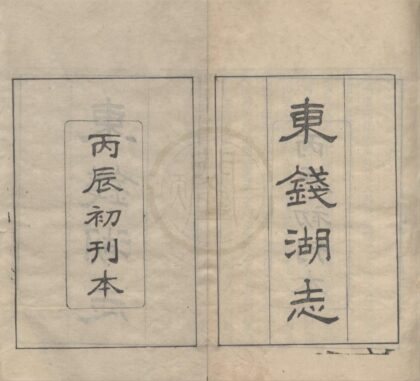 東錢湖志
丙辰初刊本